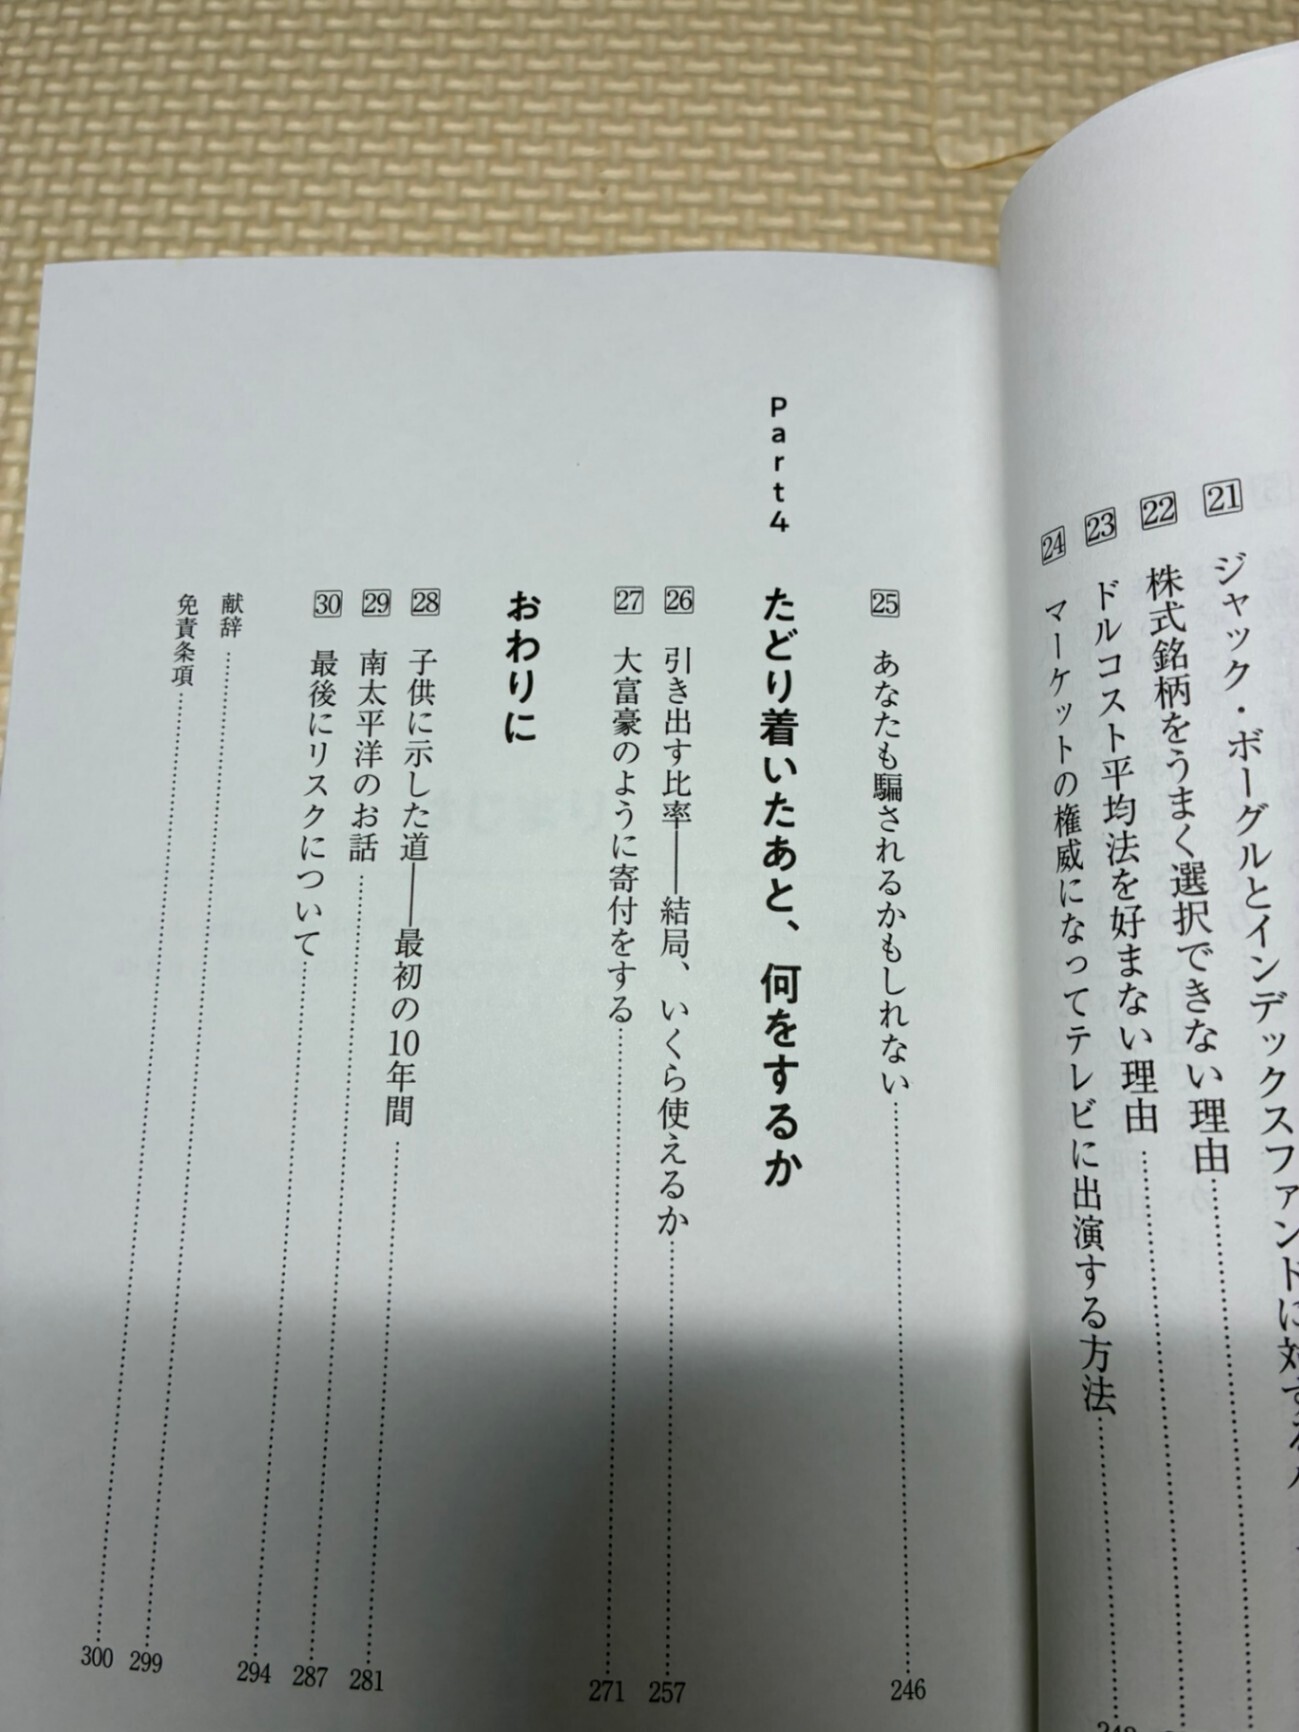 21 ジャック・ボーグルとインデックスファンドに対する
22 株式銘柄をうまく選択できない理由
23 ドルコスト平均法を好まない理由
24 マーケットの権威になってテレビに出演する方法
25 あなたも騙されるかもしれない 246
Part4 たどり着いたあと、何をするか
26 引き出す比率――結局、いくら使えるか 257
27 大富豪のように寄付をする 271
おわりに
28 子供に示した道――最初の10年間 281
29 南太平洋のお話 287
30 最後にリスクについて 294
献辞 299
免責条項 300